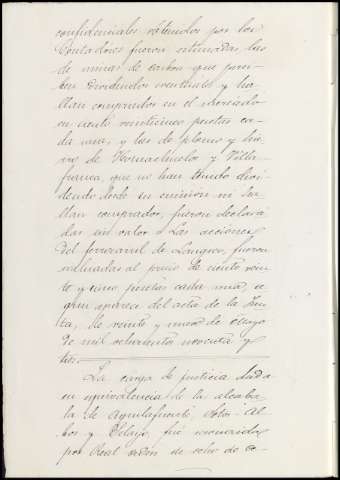 confidenciales obtenidos por los
Contadores fueron estimadas las
de minas de carbon que perci-
ben dividendos eventuales y ha-
llan comprador en el mercado
en ciento veinticinco pesetas ca-
da una, y las de plomo y hie-
rro de Hornachuelos y Villa-
franca, que no han tenido divi-
dendo desde su emisión ni ha-
llan comprador, fueron declara-
das sin valor. Las acciones
del ferrocarril de Langreo, fueron
valuadas al precio de ciento vein-
te y cinco pesetas cada una, se-
gun aparece del acta de la Jun-
ta, de veinte y nueve de Mayo
de mil ochocientos noventa y
tres.
La carga de justicia dada
en equivalencia de la alcaba-
la de Aguilafuente, Sotos-al-
bos y Pelayo, fué reconocida
por Real orden de ocho de